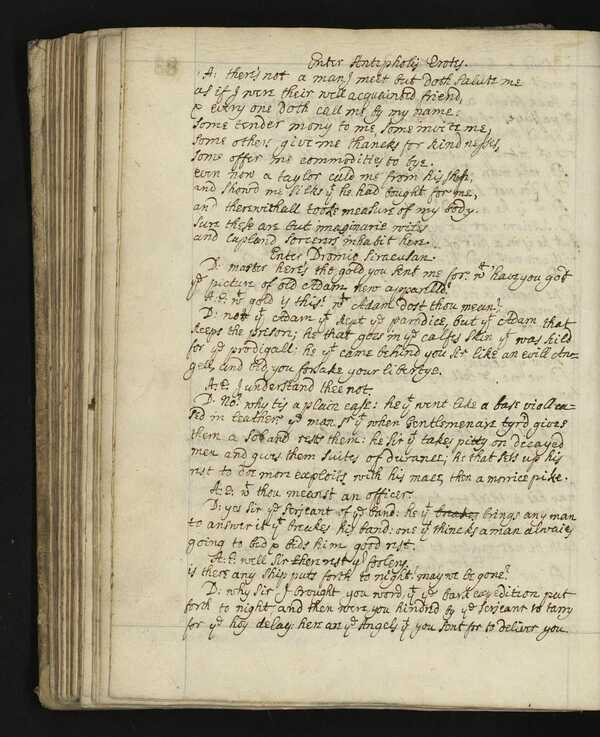 Enter Antipholis Erotes.
A: there's not a man J meet but doth salute me
as if J were their well acquainted friend,
& every one doth call me by my name:
some tender mony to me, some invite me,
some others give me thanckes for kindnesses,
some offer me commodities to bye.
even now a taylor cald me from his shop,
and show'd me silkes yt he had bought for me,
and therewithall tooke measure of my body.
sure these are but imaginarie wiles
and Lapland sorcerers inhabit here.
Enter Dromio Siracusan.
D: master here's the gold you sent me for: wt have you got
ye picture of old Adam new apparelld?
A:E: wt gold is this? wt Adam dost thou mean?
D: not yt Adam yt kept ye paradice, but yt Adam that
keeps the prison; he that goes in ye calfes skin yt was kild
for ye prodigall: he yt came behind you sir like an evill An-
gell, and bid you forsake your libertye.
A:E: J understand thee not.
D: No? why tis a plain case: he yt went like a base violl ca-
sed in leather; ye man sr yt when Gentlemen are tyrd gives
them a sob and rests them: he sir yt takes pitty on decayed
men and gives them suites of durance; he that sets up his
rest to doe more exploits with his mace, then a morrice pike.
A:E: wt thou meanst an officer.
D: yes sir ye serjeant of ye band: he yt brings any man
to answer it yt breakes his band: one yt thinckes a man alwaies
going to bed & bids him good rest.
A:E: well sir there rest yr foolery,
is there any ship puts forth to night? may we be gone?
D: why sir J brought you word, yt ye bark expedition put
forth to night and then were you hindred by ye serjeant to tarry
for ye hoy delay: here are ye Angels yt you sent for to deliver you